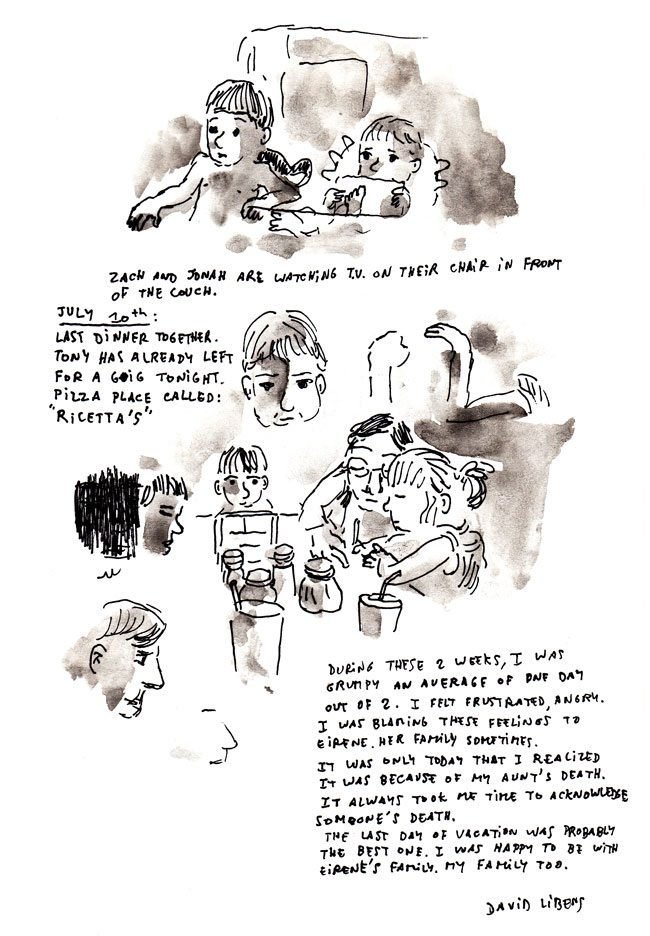 ZACH AND JONAH ARE WATCHING T.V. ON THEIR CHAIR IN FRONT
OF THE COUCH.
JULY 20th:
LAST DINNER TOGETHER.
TONY HAS ALREADY LEFT
FOR A GIG TONIGHT.
PIZZA PLACE CALLED:
"RICETTA'S"
DURING THESE 2 WEEKS, I WAS
GRUMPY AN AVERAGE OF ONE DAY
OUT OF 2. I FELT FRUSTRATED, ANGRY.
I WAS BLAMING THESE FEELINGS TO
EIRENE. HER FAMILY SOMETIMES.
IT WAS ONLY TODAY THAT I REALIZED
IT WAS BECAUSE OF MY AUNT'S DEATH.
IT ALWAYS TOOK ME TIME TO ACKNOWLEDGE
SOMEONE'S DEATH.
THE LAST DAY OF VACATION WAS PROBABLY
THE BEST ONE. I WAS HAPPY TO BE WITH
EIRENE'S FAMILY. MY FAMILY TOO.
DAVID LIBENS